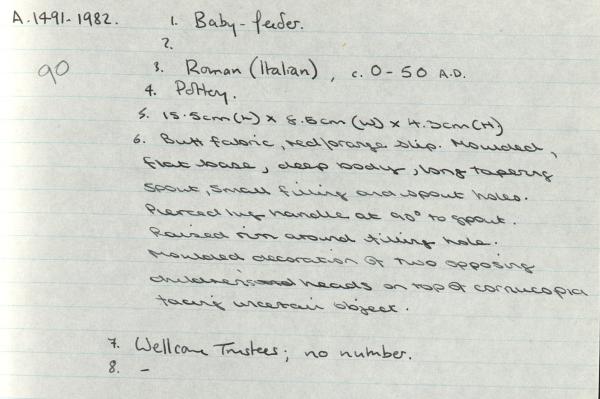 A.1491-1982. 1. Baby-feeder.
2.
90 3. Roman (Italian), c. 0-50 A.D.
4. Pottery.
5. 15.5cm(L) x 8.5cm(W) x 4.3cm(H)
6. Buff fabric, red/orange slip. Moulded,
flat base, deep body, long tapering
spout, small filling and spout holes.
Pierced lug handle at 90° to spout.
Raised rim around filling hole.
Moulded decoration of two opposing
children's heads on top of cornucopia
facing uncertain object.
7. Wellcome Trustees; no number.
8. -